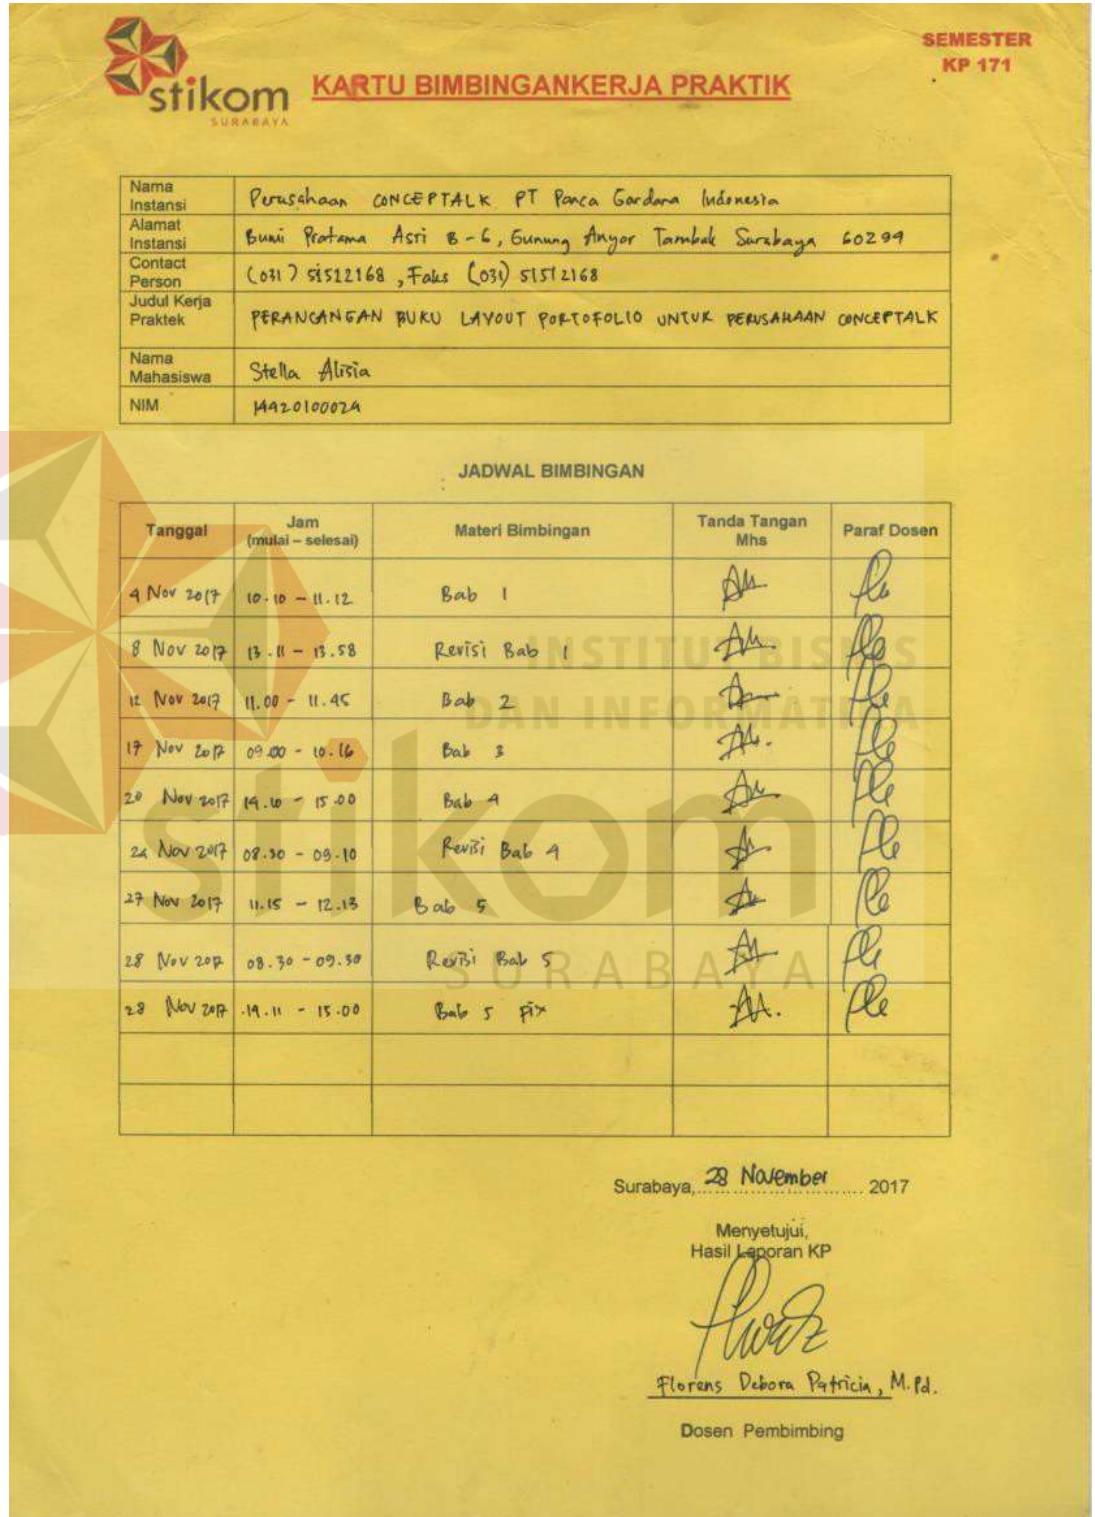 stikom
SURABAYA
SEMESTER
KP 171
KARTU BIMBINGANKERJA PRAKTIK
Nama Instansi Perusahaan CONCEPTALK PT Panca Gardana Indonesia
Alamat Instansi Bumi Pratama Asri B-6, Gunung Anyar Tambak Surabaya 60299
Contact Person (031) 51512168, Faks (031) 51512168
Judul Kerja Praktek PERANCANGAN BUKU LAYOUT PORTOFOLIO UNTUK PERUSAHAAN CONCEPTALK
Nama Mahasiswa Stella Alisia
NIM 14420100024
JADWAL BIMBINGAN
Tanggal Jam (mulai – selesai) Materi Bimbingan Tanda Tangan Mhs Paraf Dosen
4 Nov 2017 10.10 – 11.12 Bab 1
8 Nov 2017 13.11 – 13.58 Revisi Bab 1
12 Nov 2017 11.00 - 11.45 Bab 2
17 Nov 2017 09.00 - 10.16 Bab 3
20 Nov 2017 14.10 - 15.00 Bab 4
24 Nov 2017 08.30 - 09.10 Revisi Bab 4
27 Nov 2017 11.15 - 12.13 Bab 5
28 Nov 2017 08.30 - 09.30 Revisi Bab 5
28 Nov 2017 14.11 - 15.00 Bab 5 fix
INSTITUT BISNIS
DAN INFORMATIKA
stikom
SURABAYA
Surabaya, 28 November 2017
Menyetujui,
Hasil Laporan KP
Florens Debora Patricia, M.Pd.
Dosen Pembimbing